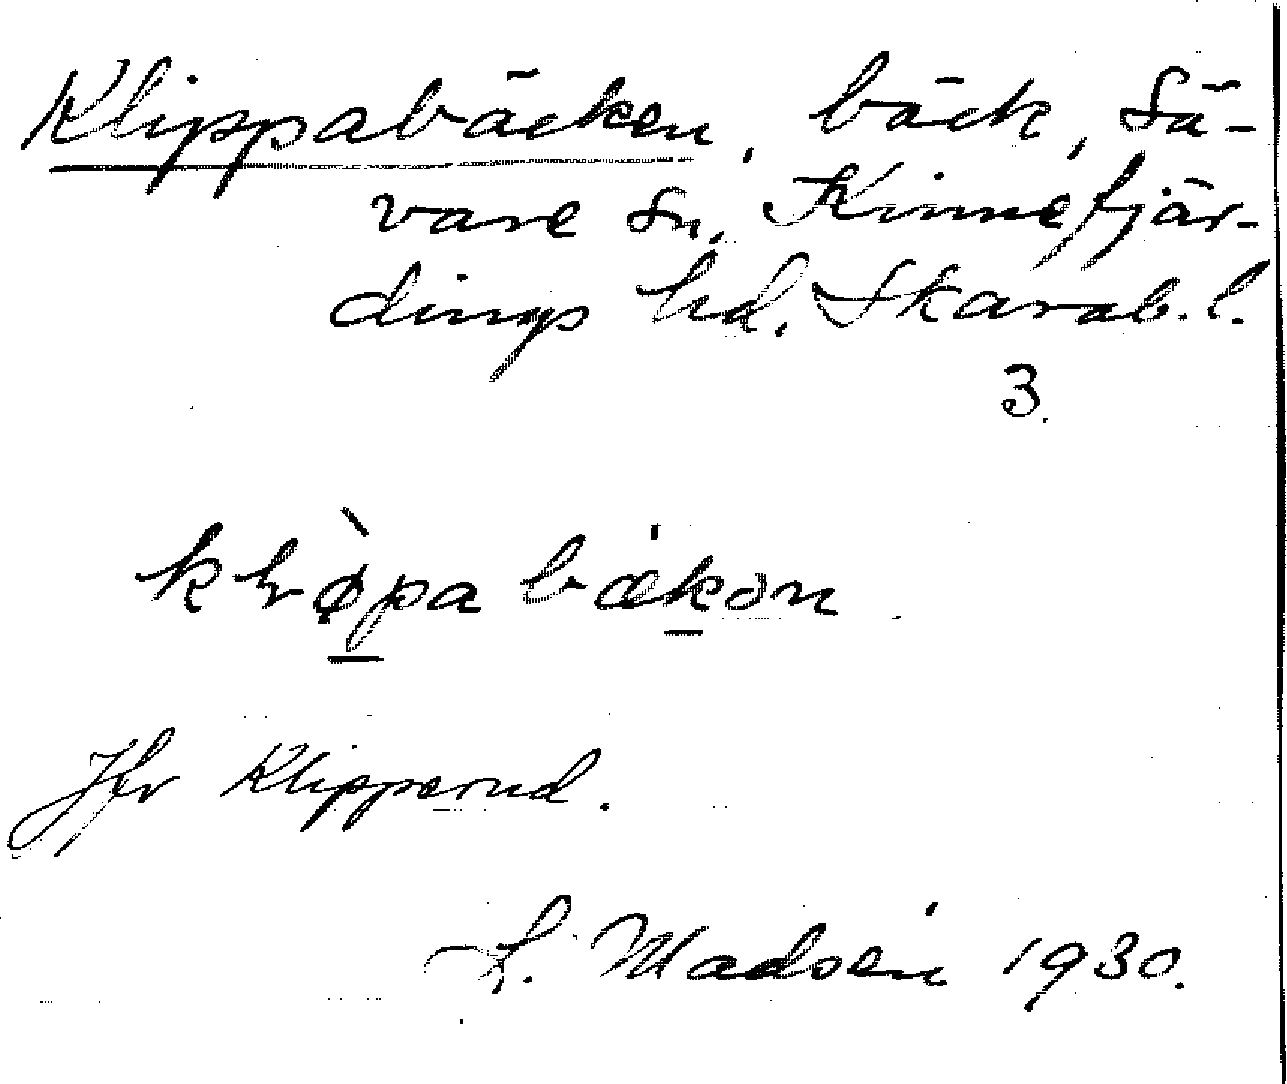 Klippabäcken, bäck, Sä-
vare sn, Kinnefjär-
dings hd. Skarab. l.
3.
Jfr Klipperud.
L. Madsén 1930.